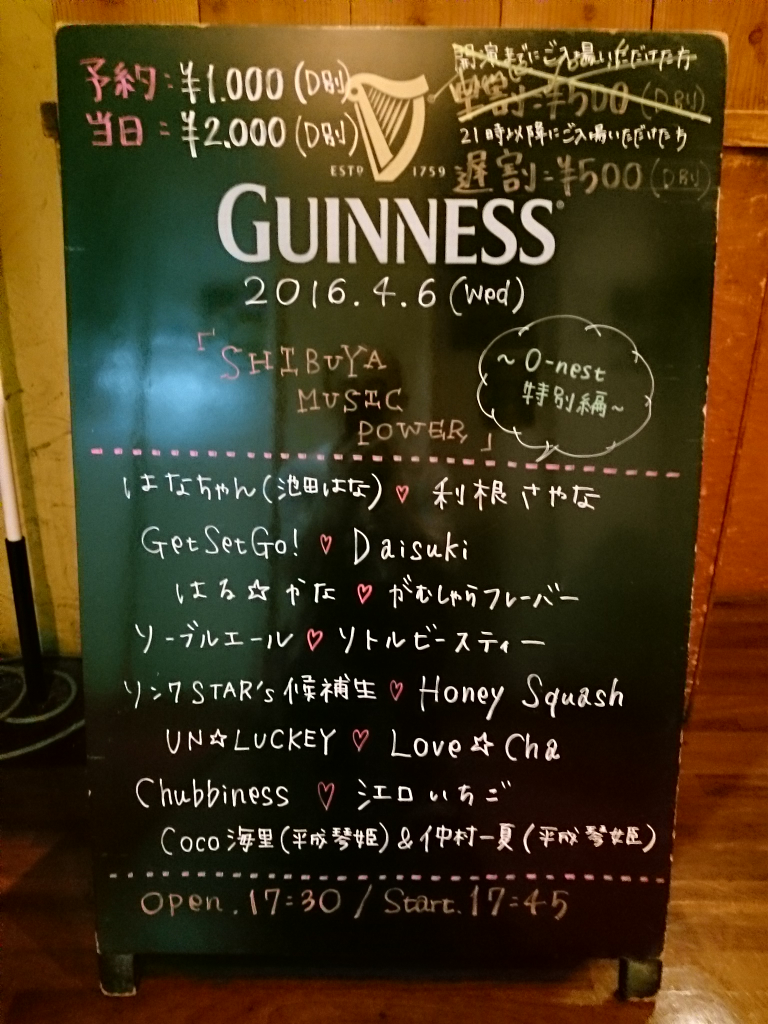 予約:¥1.000(D別)
当日:¥2.000(D別)
開演までにご入場いただけた方
早割:¥500(D別)
21時以降にご入場いただけたち
遅割:¥500(D別)
ESTD 1759
GUINNESS
2016.4.6(Wed)
「SHIBUYA
MUSIC
POWER」
~O-nest
特別編~
はなちゃん(池田はな)♡利根さやな
GetSetGo!♡Daisuki
はる☆かな♡がむしゃらフレーバー
ソーブルエール♡リトルビースティー
リンクSTAR's候補生♡Honey Squash
UN☆LUCKEY♡Love☆Cha
Chubbiness♡江口いちご
Coco海里(平成琴姫)&仲村一夏(平成琴姫)
Open.17:30/Start.17:45